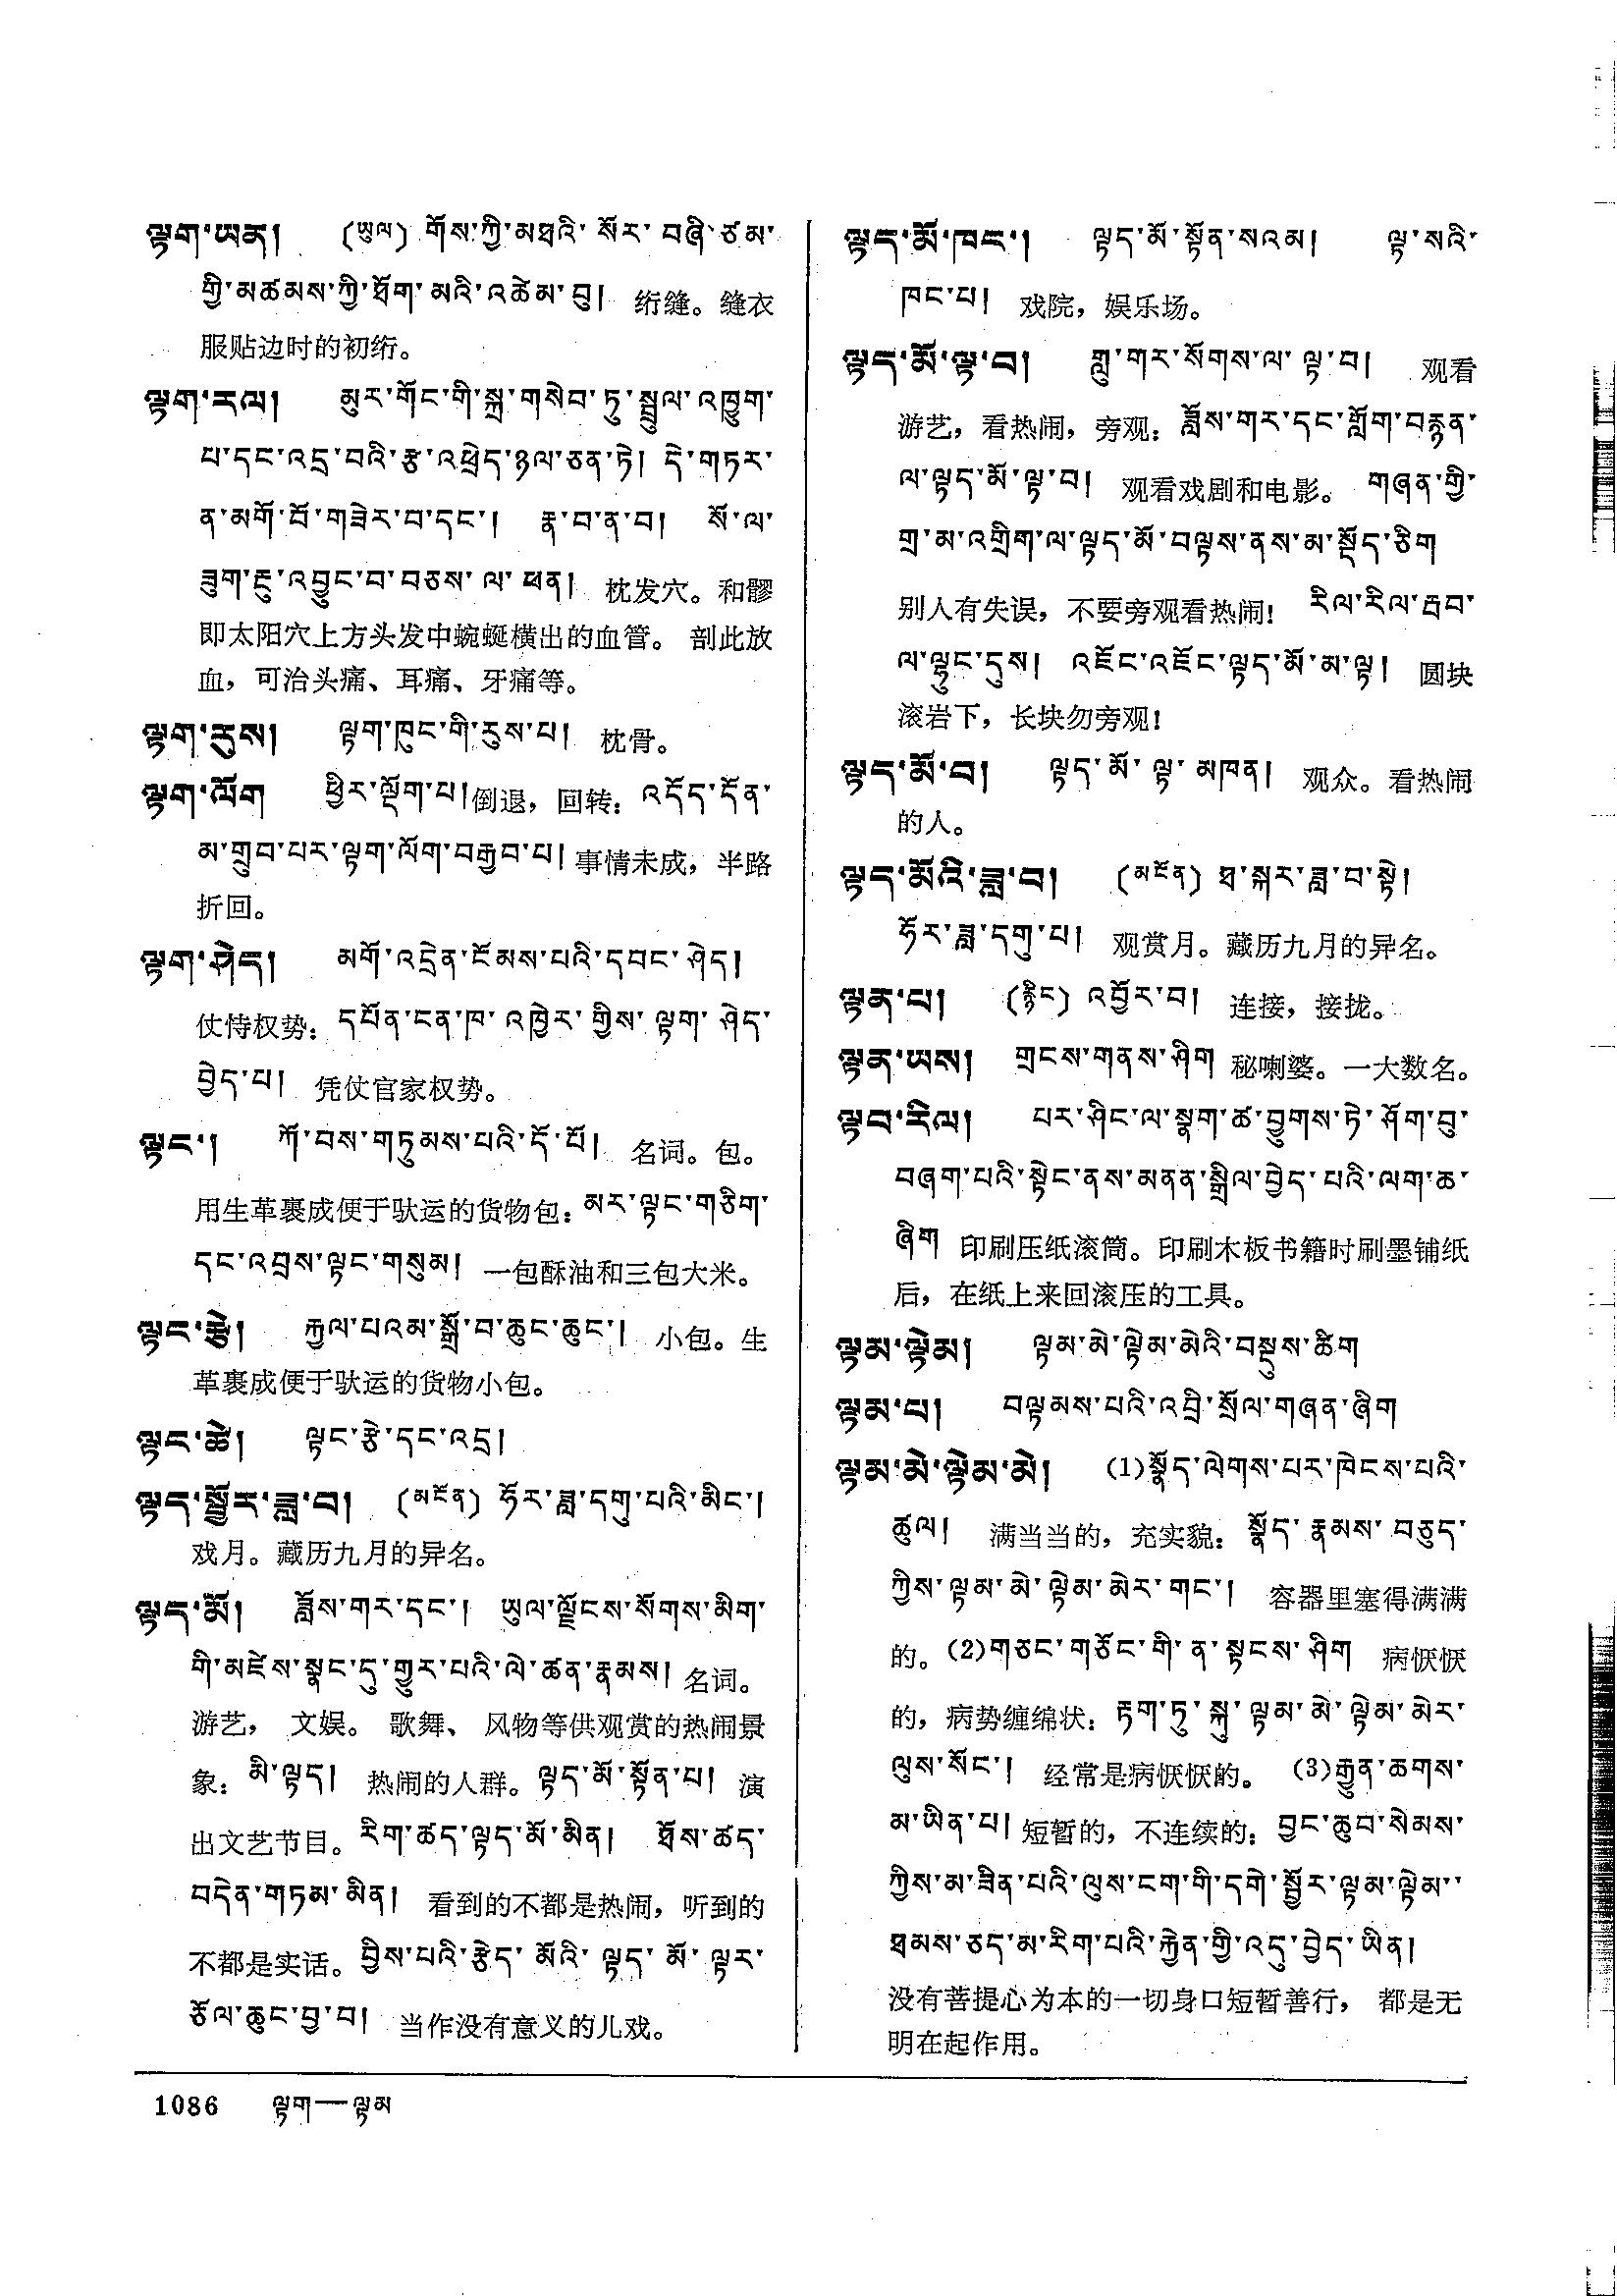 ལྟག་ཡན།   (ཡུལ) གོས་ཀྱི་མཐའི་སོར་བཞི་ཙམ་
གྱི་མཚམས་ཀྱི་ཐོག་མའི་འཚེམ་བུ།  绗缝。缝衣
服贴边时的初绗。
ལྟག་རལ།   མུར་གོང་གི་སྐྲ་གསེབ་ཏུ་སྦྲུལ་འཁྱུག་
པ་དང་འདྲ་བའི་རྩ་འཕྲེད་ཉལ་ཅན་ཏེ། དེ་གཏར་
ན་མགོ་བོ་གཟེར་བ་དང་།  རྣ་བ་ན་བ།  སོ་ལ་
ཟུག་རྔུ་འབྱུང་བ་བཅས་ལ་ཕན།  枕发穴。和髎
即太阳穴上方头发中蜿蜒横出的血管。 剖此放
血，可治头痛、耳痛、牙痛等。
ལྟག་རུས།   ལྟག་ཁུང་གི་རུས་པ།  枕骨。
ལྟག་ལོག   ཕྱིར་ལྡོག་པ།倒退，回转：འདོད་དོན་
མ་གྲུབ་པར་ལྟག་ལོག་བརྒྱབ་པ། 事情未成，半路
折回。
ལྟག་ཤེད།   མགོ་འདྲེན་ངོམས་པའི་དབང་ཤེད།
仗恃权势：དཔོན་ངན་ཁ་འཁྱེར་གྱིས་ལྟག་ཤེད་
བྱེད་པ།  凭仗官家权势。
ལྟང་།   ཀོ་བས་གཏུམས་པའི་དོ་པོ།  名词。包。
用生革裹成便于驮运的货物包：མར་ལྟང་གཅིག་
དང་འབྲས་ལྟང་གསུམ།  一包酥油和三包大米。
ལྟང་རྩེ།   རྐྱལ་པའམ་སྒྲོ་བ་ཆུང་ཆུང་།  小包。生
革裹成便于驮运的货物小包。
ལྟང་ཚེ།   ལྟང་རྩེ་དང་འདྲ།
ལྟད་སྦྱོར་ཟླ་བ།  (མངོན) ཧོར་ཟླ་དགུ་པའི་མིང་།
戏月。藏历九月的异名。
ལྟད་མོ།   ཟློས་གར་དང་།  ཡུལ་ལྗོངས་སོགས་མིག་
གི་མཛེས་སྣང་དུ་གྱུར་པའི་ལེ་ཚན་རྣམས། 名词。
游艺， 文娱。 歌舞、 风物等供观赏的热闹景
象：མི་ལྟད།  热闹的人群。ལྟད་མོ་སྟོན་པ།  演
出文艺节目。རིག་ཚད་ལྟད་མོ་མིན།  ཐོས་ཚད་
བདེན་གཏམ་མིན།  看到的不都是热闹，听到的
不都是实话。བྱིས་པའི་རྩེད་མོའི་ལྟད་མོ་ལྟར་
ཙོལ་ཆུང་བྱ་བ།  当作没有意义的儿戏。
ལྟད་མོ་ཁང་།   ལྟད་མོ་སྟོན་སའམ།   ལྟ་སའི་
ཁང་པ།  戏院，娱乐场。
ལྟད་མོ་ལྟ་བ།   གླུ་གར་སོགས་ལ་ལྟ་བ།  观看
游艺，看热闹，旁观：ཟློས་གར་དང་གློག་བརྙན་
ལ་ལྟད་མོ་ལྟ་བ།  观看戏剧和电影。 གཞན་གྱི་
གྲ་མ་འགྲིག་ལ་ལྟད་མོ་བལྟས་ནས་མ་སྡོད་ཅིག
别人有失误，不要旁观看热闹！ རིལ་རིལ་རྦབ་
ལ་ལྷུང་དུས།  འཇོང་འཇོང་ལྟད་མོ་མ་ལྟ།  圆块
滚岩下，长块勿旁观！
ལྟད་མོ་བ།   ལྟད་མོ་ལྟ་མཁན།  观众。看热闹
的人。
ལྟད་མོའི་ཟླ་བ།   (མངོན) ཐ་སྐར་ཟླ་བ་སྟེ།
ཧོར་ཟླ་དགུ་པ།  观赏月。藏历九月的异名。
ལྟན་པ།   (རྙིང) འབྱོར་བ།  连接，接拢。
ལྟན་ཡས།   གྲངས་གནས་ཤིག 秘喇婆。一大数名。
ལྟབ་རིལ།   པར་ཤིང་ལ་སྣག་ཚ་བྱུགས་ཏེ་ཤོག་བུ་
བཞག་པའི་སྟེང་ནས་མནན་སྒྲིལ་བྱེད་པའི་ལག་ཆ་
ཞིག 印刷压纸滚筒。印刷木板书籍时刷墨铺纸
后，在纸上来回滚压的工具。
ལྟམ་ལྟེམ།   ལྟམ་མེ་ལྟེམ་མེའི་བསྡུས་ཚིག
ལྟམ་པ།   བལྟམས་པའི་འབྲི་སྲོལ་གཞན་ཞིག
ལྟམ་མེ་ལྟེམ་མེ།   (1)སྣོད་ལེགས་པར་ཁེངས་པའི་
ཚུལ།  满当当的，充实貌：སྣོད་རྣམས་བཅུད་
ཀྱིས་ལྟམ་མེ་ལྟེམ་མེར་གང་།  容器里塞得满满
的。(2)གཅང་གཅོང་གི་ན་སྟངས་ཤིག  病恹恹
的，病势缠绵状：རྟག་ཏུ་སྐུ་ལྟམ་མེ་ལྟེམ་མེར་
ལུས་སོང་།  经常是病恹恹的。 (3)རྒྱུན་ཆགས་
མ་ཡིན་པ། 短暂的，不连续的：བྱང་ཆུབ་སེམས་
ཀྱིས་མ་ཟིན་པའི་ལུས་ངག་གི་དགེ་སྦྱོར་ལྟམ་ལྟེམ་་
ཐམས་ཅད་མ་རིག་པའི་རྐྱེན་གྱི་འདུ་བྱེད་ཡིན།
没有菩提心为本的一切身口短暂善行， 都是无
明在起作用。
1086  ལྟག—ལྟམ